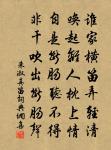 誰家橫笛弄輕清
喚起離人枕上情
自是斷腸聽不得
非干吹出斷腸聲
朱淑真笛詞典網集